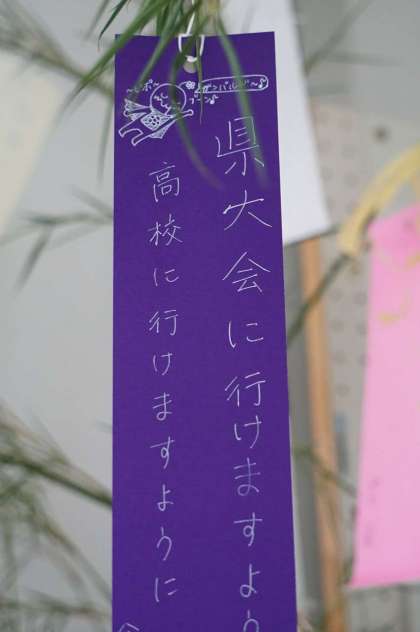 県大会に行けますよう
高校に行けますように